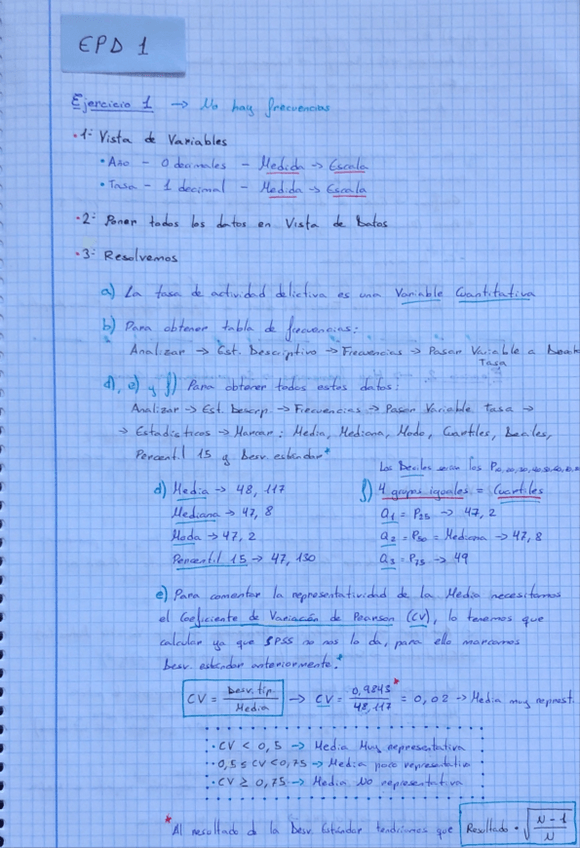 EPD 1
Ejercicio 1 → No hay frecuencias
·1: Vista de Variables
• Año - 0 decimales - Medida → Escala
• Tasa - 1 decimal - Medida → Escala
·2: Poner todos los datos en Vista de Datos
·3: Resolvemos
a) La tasa de actividad delictiva es una Variable Cuantitativa
b) Para obtener tabla de frecuencias:
Analizar → Est. Descriptivo → Frecuencias → Pasar Variable a
Tasa
d), e) y f) Para obtener todos estos datos:
Analizar → Est. Descrip → Frecuencias → Pasar Variable Tasa →
→ Estadísticos → Marcar: Media, Mediana, Moda, Cuartiles, Deciles,
Percentil 15 y Desv. estándar*
Los Deciles serían los P10,20,30,40,50,60
d) Media → 48,117
Mediana → 47,8
Moda → 47,2
Percentil 15 → 47,130
f) 4 grupos iguales = Cuartiles
Q1 = P25 → 47,2
Q2 = P50 = Mediana → 47,8
Q3 = P75 → 49
e) Para comentar la representatividad de la Media necesitamos
el Coeficiente de Variación de Pearson (CV), lo tenemos que
calcular ya que SPSS no nos lo da, para ello marcamos
Desv. estándar anteriormente.*
CV = Desv. tip / Media → CV = 0,9843* / 48,117 = 0,02 → Media muy represt.
• CV < 0,5 → Media Muy representativa
• 0,5 ≤ CV < 0,75 → Media poco representativa
• CV ≥ 0,75 → Media No representativa
* Al resultado de la Desv. Estándar tendríamos que Resultado · √(N - 1 / N)